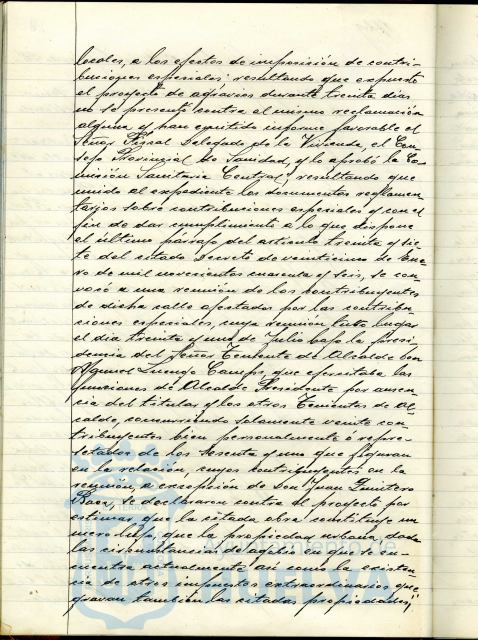 locales, a los efectos de imposición de contri-
buciones especiales: resultando que expuesto
el proyecto de agravios durante treinta dias
no se presentó contra el mismo reclamación
alguna y han emitido informe favorable el
Señor Fiscal Delegado de la Vivienda, el Con-
sejo Provincial de Sanidad, y lo aprobó la Co-
misión Sanitaria Central; resultando que
unido al expediente los documentos reglamen-
tarios sobre contribuciones especiales y con el
fin de dar cumplimiento a lo que dispone
el último párrafo del articulo treinta y sie-
te del citado Decreto de veinticinco de Ene-
ro de mil novecientos cuarenta y seis, se con-
vocó a una reunión de los contribuyentes
de dicha calle afectados por las contribu-
ciones especiales, cuya reunión tuvo lugar
el dia treinta y uno de Julio bajo la presi-
dencia del Señor Teniente de Alcalde Don
Manuel Luengo Camps, que ejercitaba las
funciones de Alcalde Presidente por ausen-
cia del titular y los otros Tenientes de Al-
calde, concurriendo solamente veinte con-
tribuyentes bien personalmente ó repre-
sentados de los sesenta y uno que figuran
en la relación, cuyos contribuyentes en la
reunión a excepción de Don Juan Quintero
Baez, se declararon contra el proyecto por
estimar que la citada obra constituye un
mero lujo, que la propiedad urbana dada
las circunstancias de agobio en que se en-
cuentra actualmente asi como la existen-
cia de otros impuestos extraordinarios que
gravan tambien las citadas propiedades;
Ayuntamiento de
HUELVA